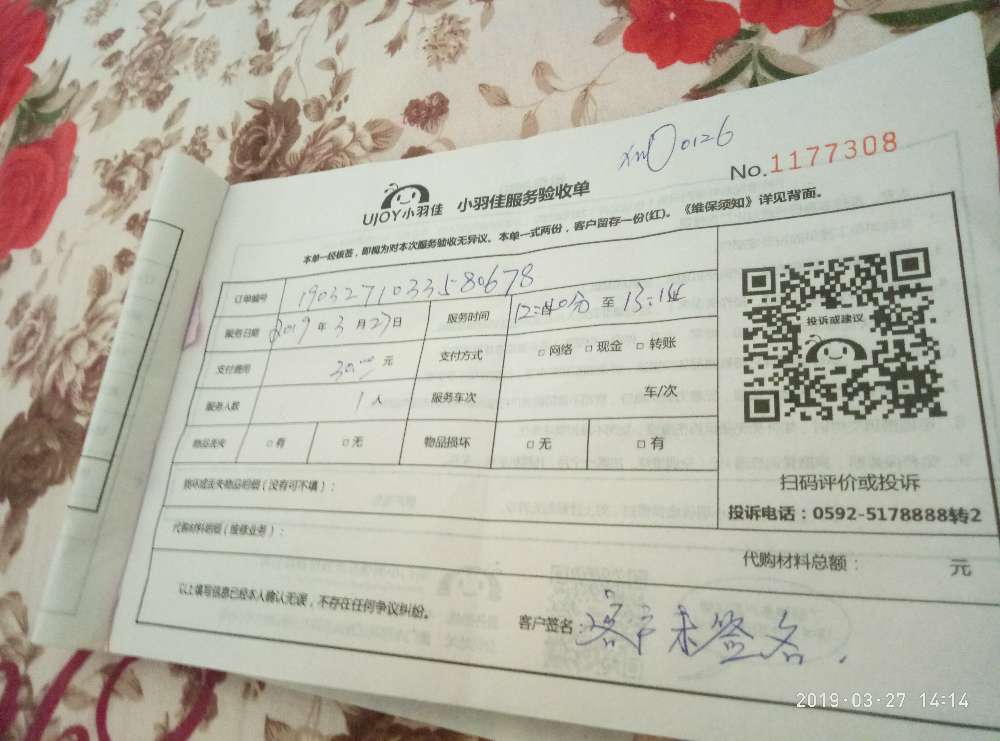 xm00126
No.1177308
UJOY小羽佳 小羽佳服务验收单
本单一经核签，即视为对本次服务验收无异议。本单一式两份，客户留存一份(红)。《维保须知》详见背面。
订单编号 1903271033580678
服务日期 2019年3月27日 服务时间 至
支付费用 30.00元 支付方式 □网络 □现金 □转账
服务人数 1人 服务车次 车/次
物品丢失 □有 □无 物品损坏 □无 □有
损坏或丢失物品明细（没有可不填）：
代购材料明细（维修业务）：
代购材料总额： 元
以上填写信息已经本人确认无误，不存在任何争议纠纷。
客户签名：客户未签名.
投诉或建议
扫码评价或投诉
投诉电话：0592-5178888转2
2019-03-27 14:14